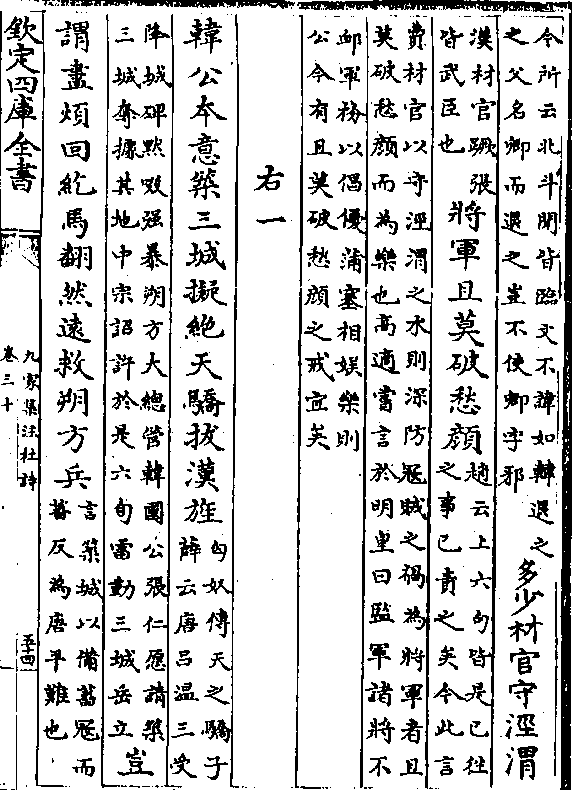 今所云北斗閒皆臨文不諱如韓退之
之父名卿而退之豈不使卿字邪
多少材官守涇渭
漢材官蹶張
皆武臣也
將軍且莫破愁顏
趙云上六句皆是已往
之事已責之矣今此言
費材官以守涇渭之水則深防冦賊之禍為將軍者且
莫破愁顏而為樂也髙適嘗言於明皇曰監軍諸將不
䘏軍務以倡優蒲塞相娱樂則
公今有且莫破愁顏之戒宜矣
右一
韓公本意築三城擬絶天驕拔漢旌
匈奴傳天之驕子
薛云唐吕温三受
降城碑黙啜强暴朔方大總管韓國公張仁愿請築
三城奪據其地中宗詔許於是六旬雷動三城岳立
豈
謂盡煩回紇馬翻然逺救朔方兵
言築城以備蕃冦而
蕃反為唐平難也
欽定四庫全書
九家集注杜詩
卷三十
五十四